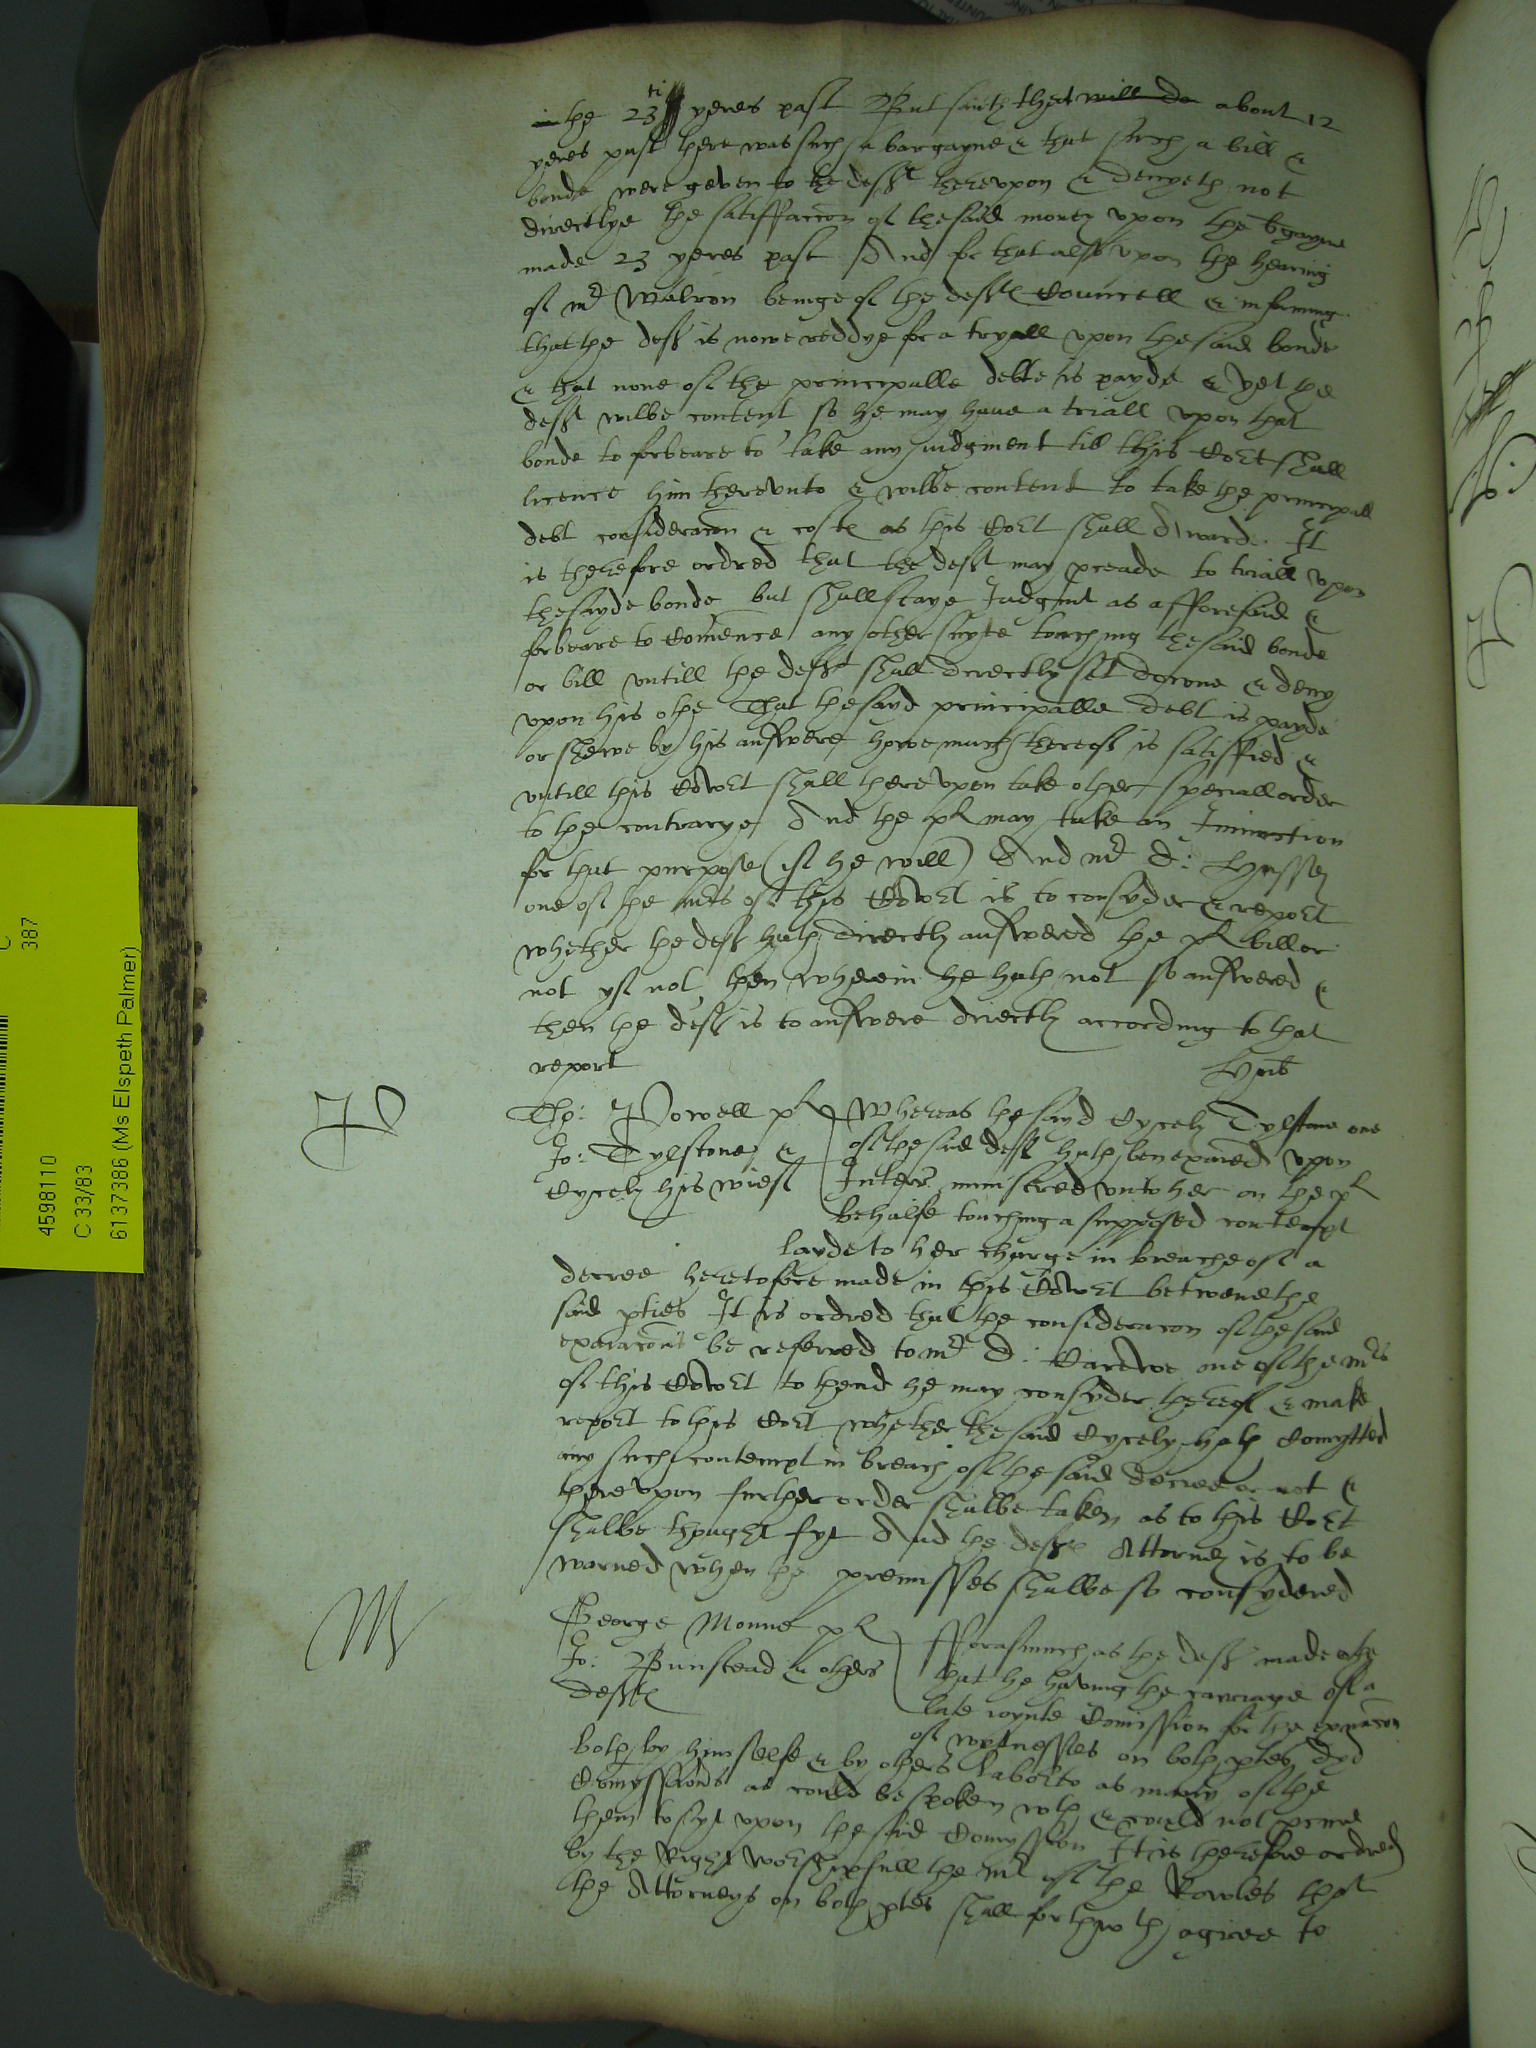 the 23ti yeres past But saieth that will do about 12
yeres past there was such a bargayne & that such a bill &
bonde were geven to the defft therevpon & denyeth not
directlye the satisfaccon of the said money vpon the bgayne
made 23 yeres past And for that also vpon the hearing
of mr Walron beinge of the deffts Councell & informing
that the deft is nowe reddye for a tryall vpon the said bonde
& that none of the principalle debte is payde & yet the
deft wilbe content so he may haue a triall vpon that
bonde to forbeare to take any iudgment till this Cort shall
licence him therevnto & wilbe content to take the principall
debt consideracon & costs as this Cort shall Awarde. It
is therefore ordred that the deft may pceade to triall vpon
the sayde bonde but shall staye Iudgmt as afforesaid &
forbeare to Comence any other suyte touching the said bonde
or bill vntill the defft shall directly set downe & deny
vpon his othe That the sayd principalle debt is payde
or shewe by his answere howe much thereof is satisfied &
vntill this Cowrt shall therevpon take other speciall order
to the contrarye And the pl may take an Iniunction
for that purpose (if he will) And mr D: Hussey
one of the mrs of this Cowrt is to consyder & report
whether the deft hath directly answered the pl bill or
not yf not then wherein he hath not so answered &
then the deft is to answere directly according to that
report
Tho: Powell pl
Jo: Tylstone &
Cycely his wief
Whereas the sayd Cycely Tylstone one
of the said deft hath ben examed vpon
Interr ministred vnto her on the pl
behalfe touching a supposed contempt
layde to her charge in breache of a
decree heretofore made in this Cowrt betwene the
said pties It is ordred that the consideracon of the said
examacons be referred to mr D: Carewe one of the mrs
of this Cowrt to thend he may consyder thereof & make
report to this Cort whether the said Cycely hath Comytted
any such contempt in breach of the said decree or not &
therevpon further order shalbe taken as to this Cort
shalbe thought fyt And the deffts Attorney is to be
warned when the premisses shalbe so consydered
M
George Monne pl
Jo: Bunstead & others
deffts
fforasmuch as the deft made othe
that he having the carriage of a
late ioynte Comission for the examacon
of wytnesses on both ptes dyd
both by himselfe & by others labor to as many of the
Comyssions as could be spoken wth & could not pcure
them to syt vpon the said Comyssion It is therefore ordred
by the Right worshipfull the mr of the Rowles that
the Attorneys on both ptes shall forthwth agree to
4598110
C 33/83
6137386 (Ms Elspeth Palmer)
387